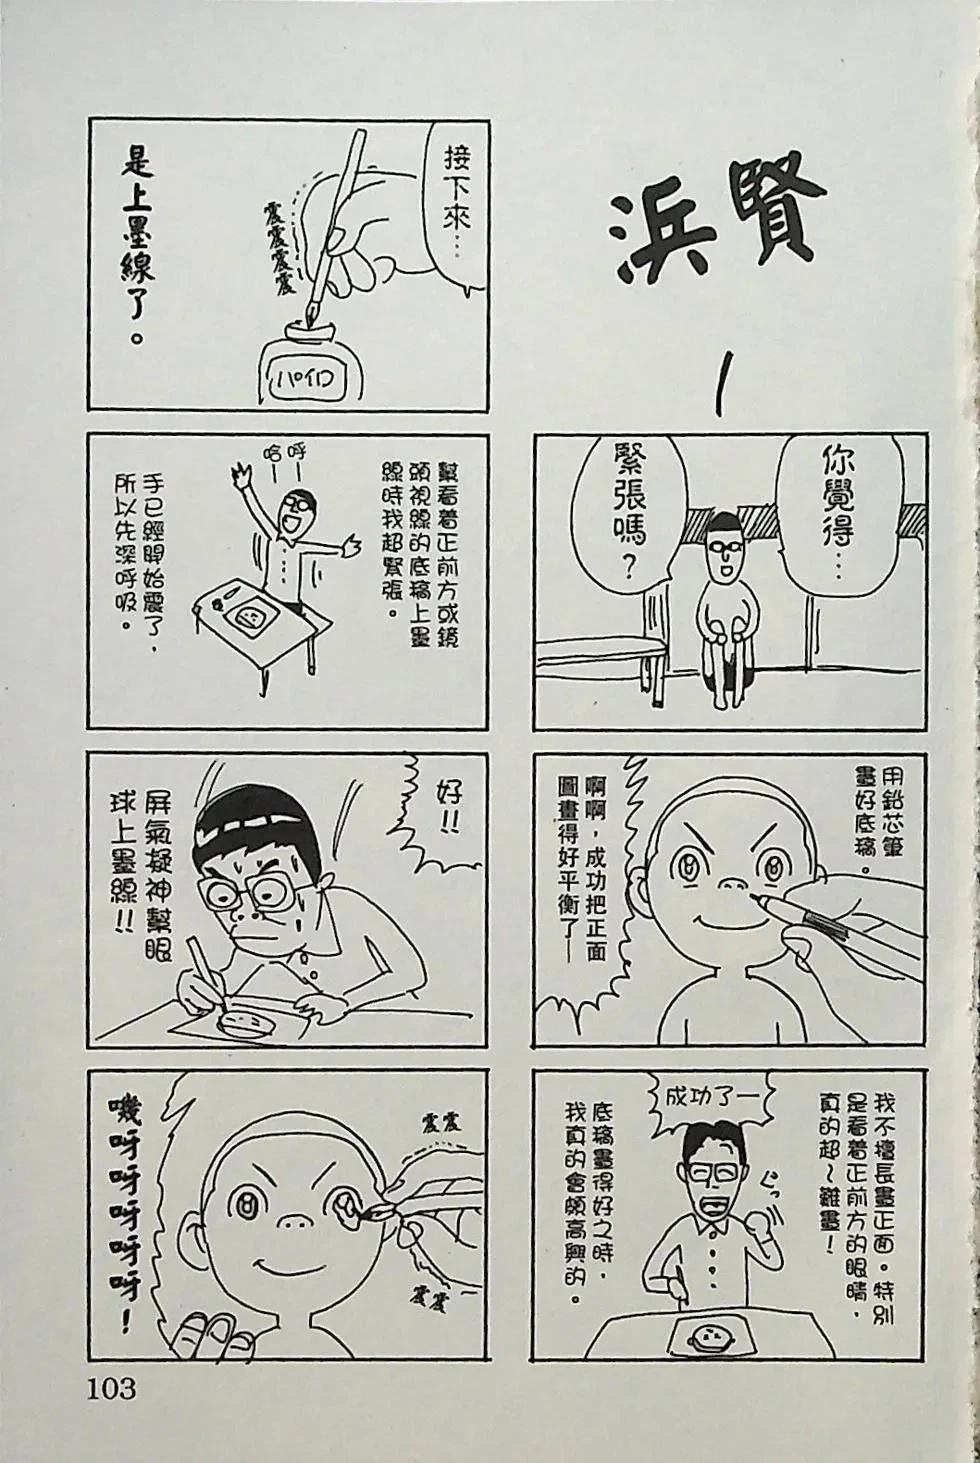 浜賢
1
你覺得…
緊張嗎？
用鉛芯筆
畫好底稿。
啊啊，成功把正面
圖畫得好平衡了—
我不擅長畫正面。特別
是看着正前方的眼睛，
真的超～難畫！
成功了—
ぐっ
底稿畫得好之時，
我真的會頗高興的。
接下來…
震震震震
是上墨線了。
パイロ
幫看着正前方或鏡
頭視線的底稿上墨
線時我超緊張。
呼—
哈—
手已經開始震了，
所以先深呼吸。
好!!
屏氣凝神幫眼
球上墨線!!
震震
震震
嘰呀呀呀呀呀！
103